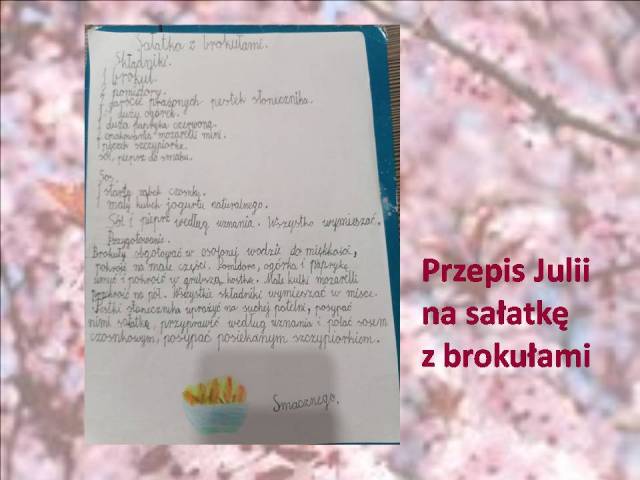 Sałatka z brokułami.
Składniki.
1 brokuł.
2 pomidory.
garście prażonych pestek słonecznika.
1 duży ogórek.
1 duża papryka czerwona.
opakowania mozarelli mini.
1 pęczek szczypiorku.
sól, pieprz do smaku.
Sos.
1 starty ząbek czosnku.
1 mały kubek jogurtu naturalnego.
Sól i pieprz według uznania. Wszystko wymieszać.
Przygotowanie.
Brokuły obgotować w osolonej wodzie do miękkości,
pokroić na małe części. Pomidora, ogórka i paprykę
umyć i pokroić w grubszą kostkę. Małe kulki mozarelli
przekroić na pół. Wszystkie składniki wymieszać w misce.
Pestki słonecznika uprażyć na suchej patelni, posypać
nimi sałatkę, przyprawić według uznania i polać sosem
czosnkowym, posypać posiekanym szczypiorkiem.
Smacznego.
Przepis Julii
na sałatkę
z brokułami